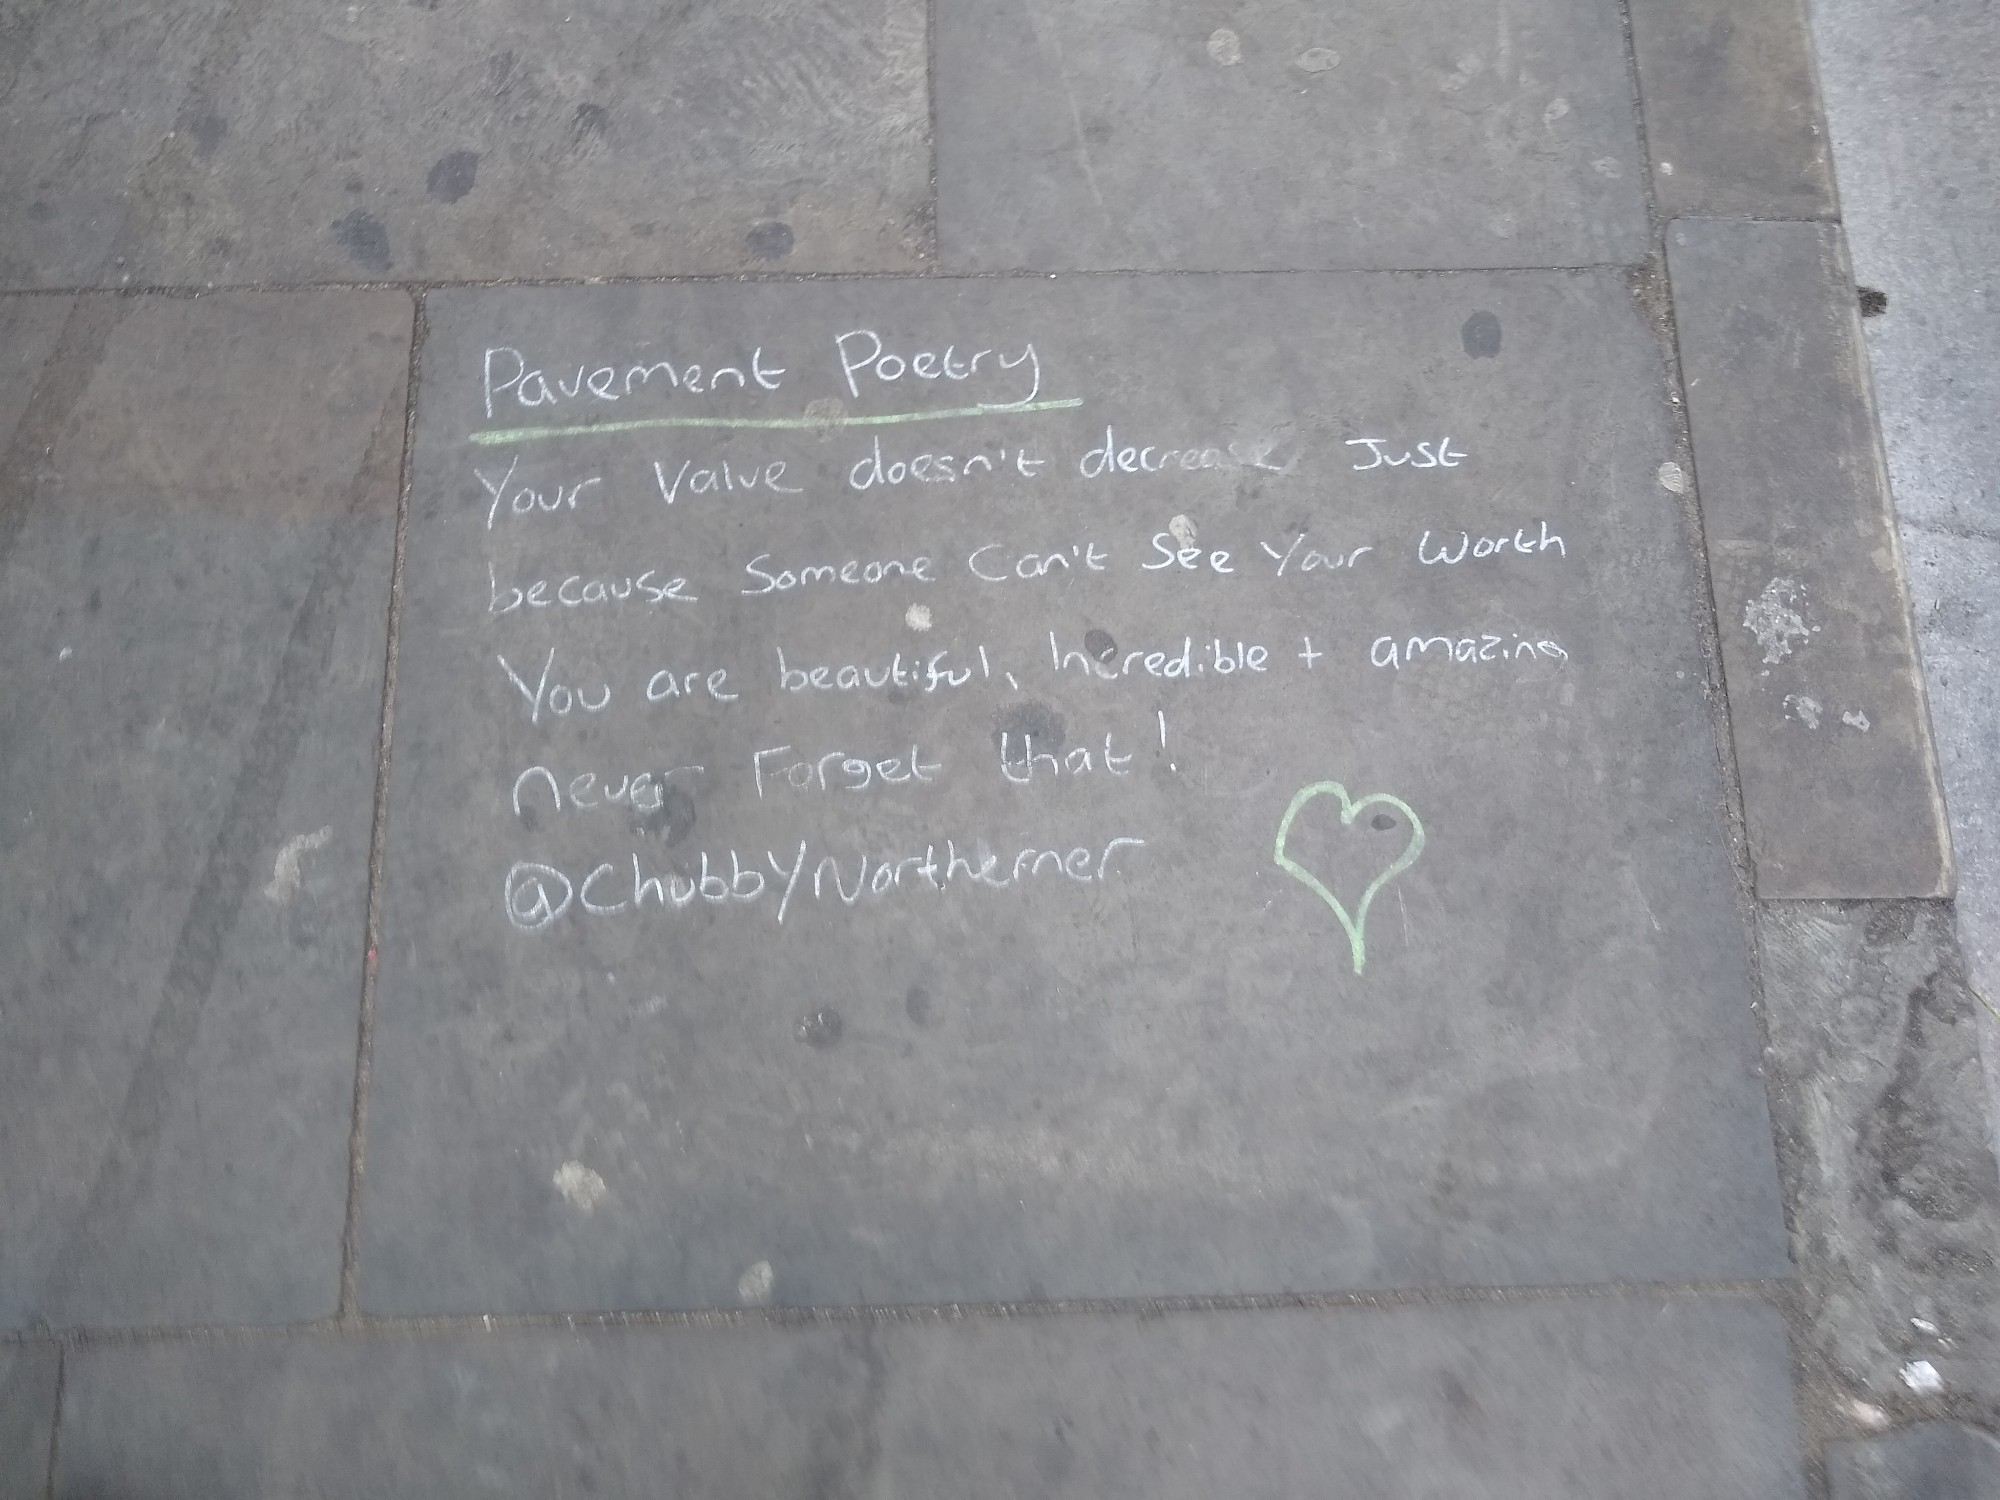 Pavement Poetry
Your Value doesn't decrease Just
because Someone Can't See Your Worth
You are beautiful, Incredible + amazing
never Forget that!
@ChubbyNortherner